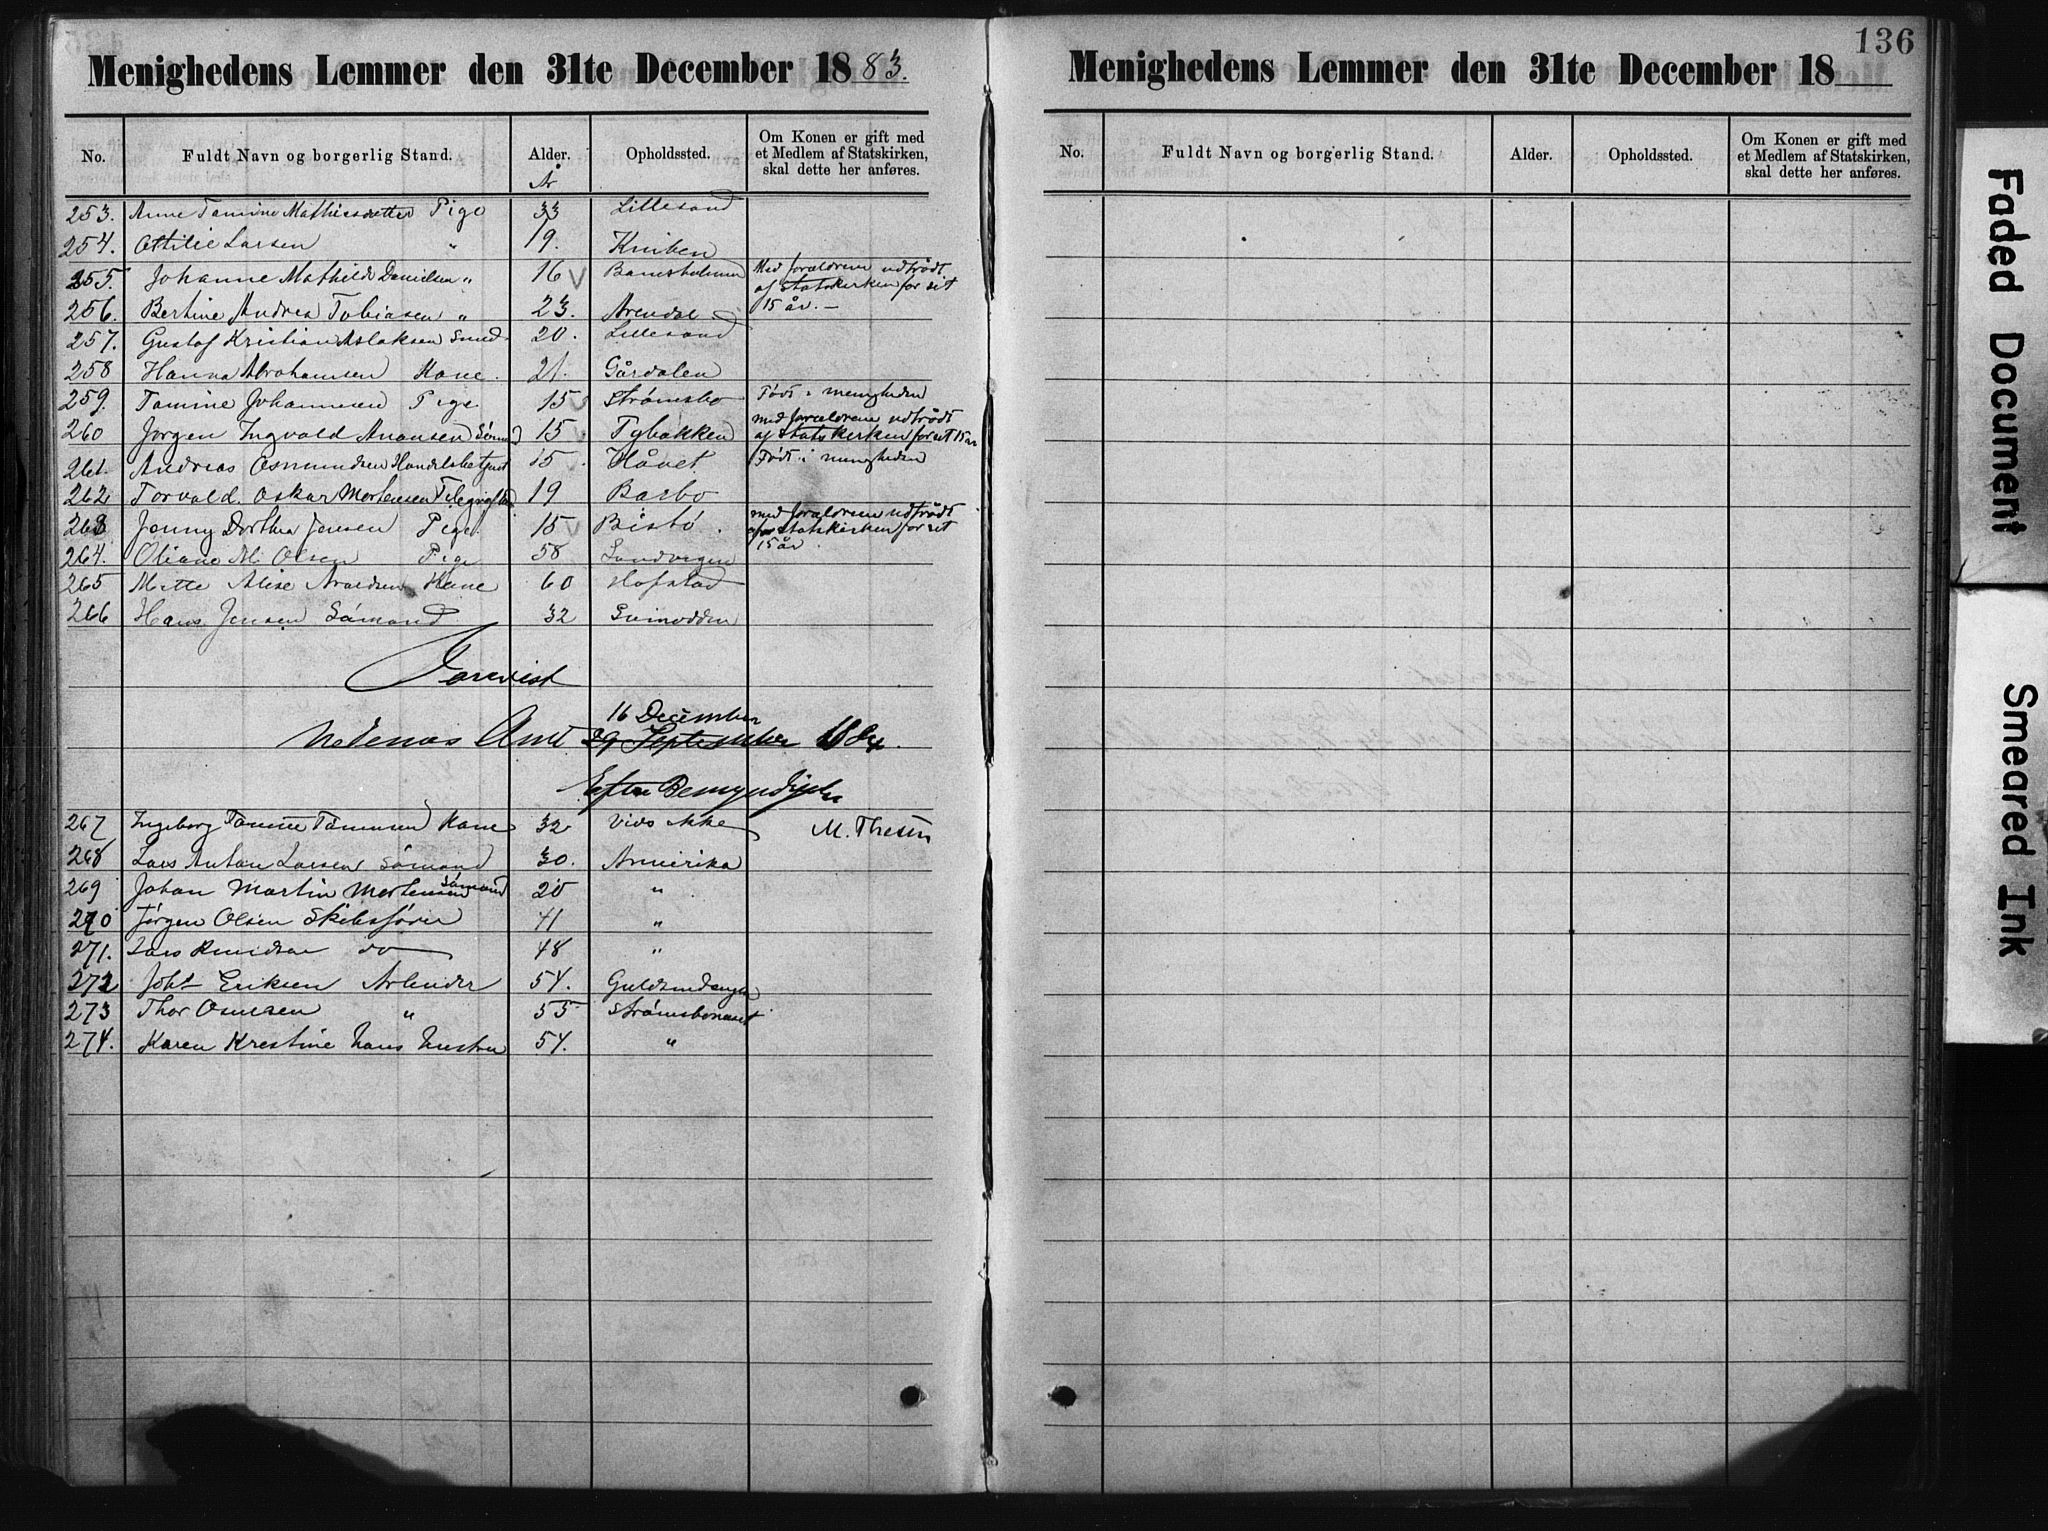 136
Menighedens Lemmer den 31te December 1883.
No. Fuldt Navn og borgerlig Stand. Alder. Opholdssted. Om Konen er gift med et Medlem af Statskirken, skal dette her anføres.
År
253. Anne Tomine Mathiesdatter Pige 33 Lillesand
254. Ottilie Larsen " 19. Kniben
255. Johanne Mathilde Danielsen " 16 Med forældrene udtrådt af Statskirken for sit 15 år. —
256. Bertine Andrea Tobiasen " 23. Arendal
257. Gustaf Kristian Aslaksen Smed 20. Lillesand
258 Hanna Abrahamsen Kone. 21. Gårdalen
259. Tomine Johannesen Pige 15 Strømsbo Født i menigheden
260 Jørgen Ingvald Anonsen Sømnd 15 Tybakken med forældrene udtrådt af Statskirken for sit 15 år
261. Andreas Osmundsen Handelsbetjent 15 Håvet Født i menigheden
262 Torvald Oskar Mortensen 19 Barbo
263 Jenny Dorthea Jensen Pige. 15 Bistø. med forældrene udtrådt af Statskirken for sit 15 år.
264. Oliane M. Olsen Pige 58 Sandvigen
265 Mette Alise Kone 60 Hofstad
266 Hans Jensen Sømand 32
Forevist
16 December
Nedenæs Amt 29 September 188
Efter Bemyndigelse
M. Thesen
267 Ingeborg Tomine Kone 32 Vides ikke
268 Lars Anton Larsen Sømand 30. Amerika
269 Johan Martin Mortensen Sømand 20 "
270 Jørgen Olsen Skibsfører 41 "
271. Lars Knudsen do 48 "
272 Joht Eriksen Arbeider 54.
273 Thor Osmsen " 55 Strømsboneset
274. Karen Kristine hans hustru 54. "
Menighedens Lemmer den 31te December 18
No. Fuldt Navn og borgerlig Stand. Alder. Opholdssted. Om Konen er gift med et Medlem af Statskirken, skal dette her anføres.
Faded Document
Smeared Ink